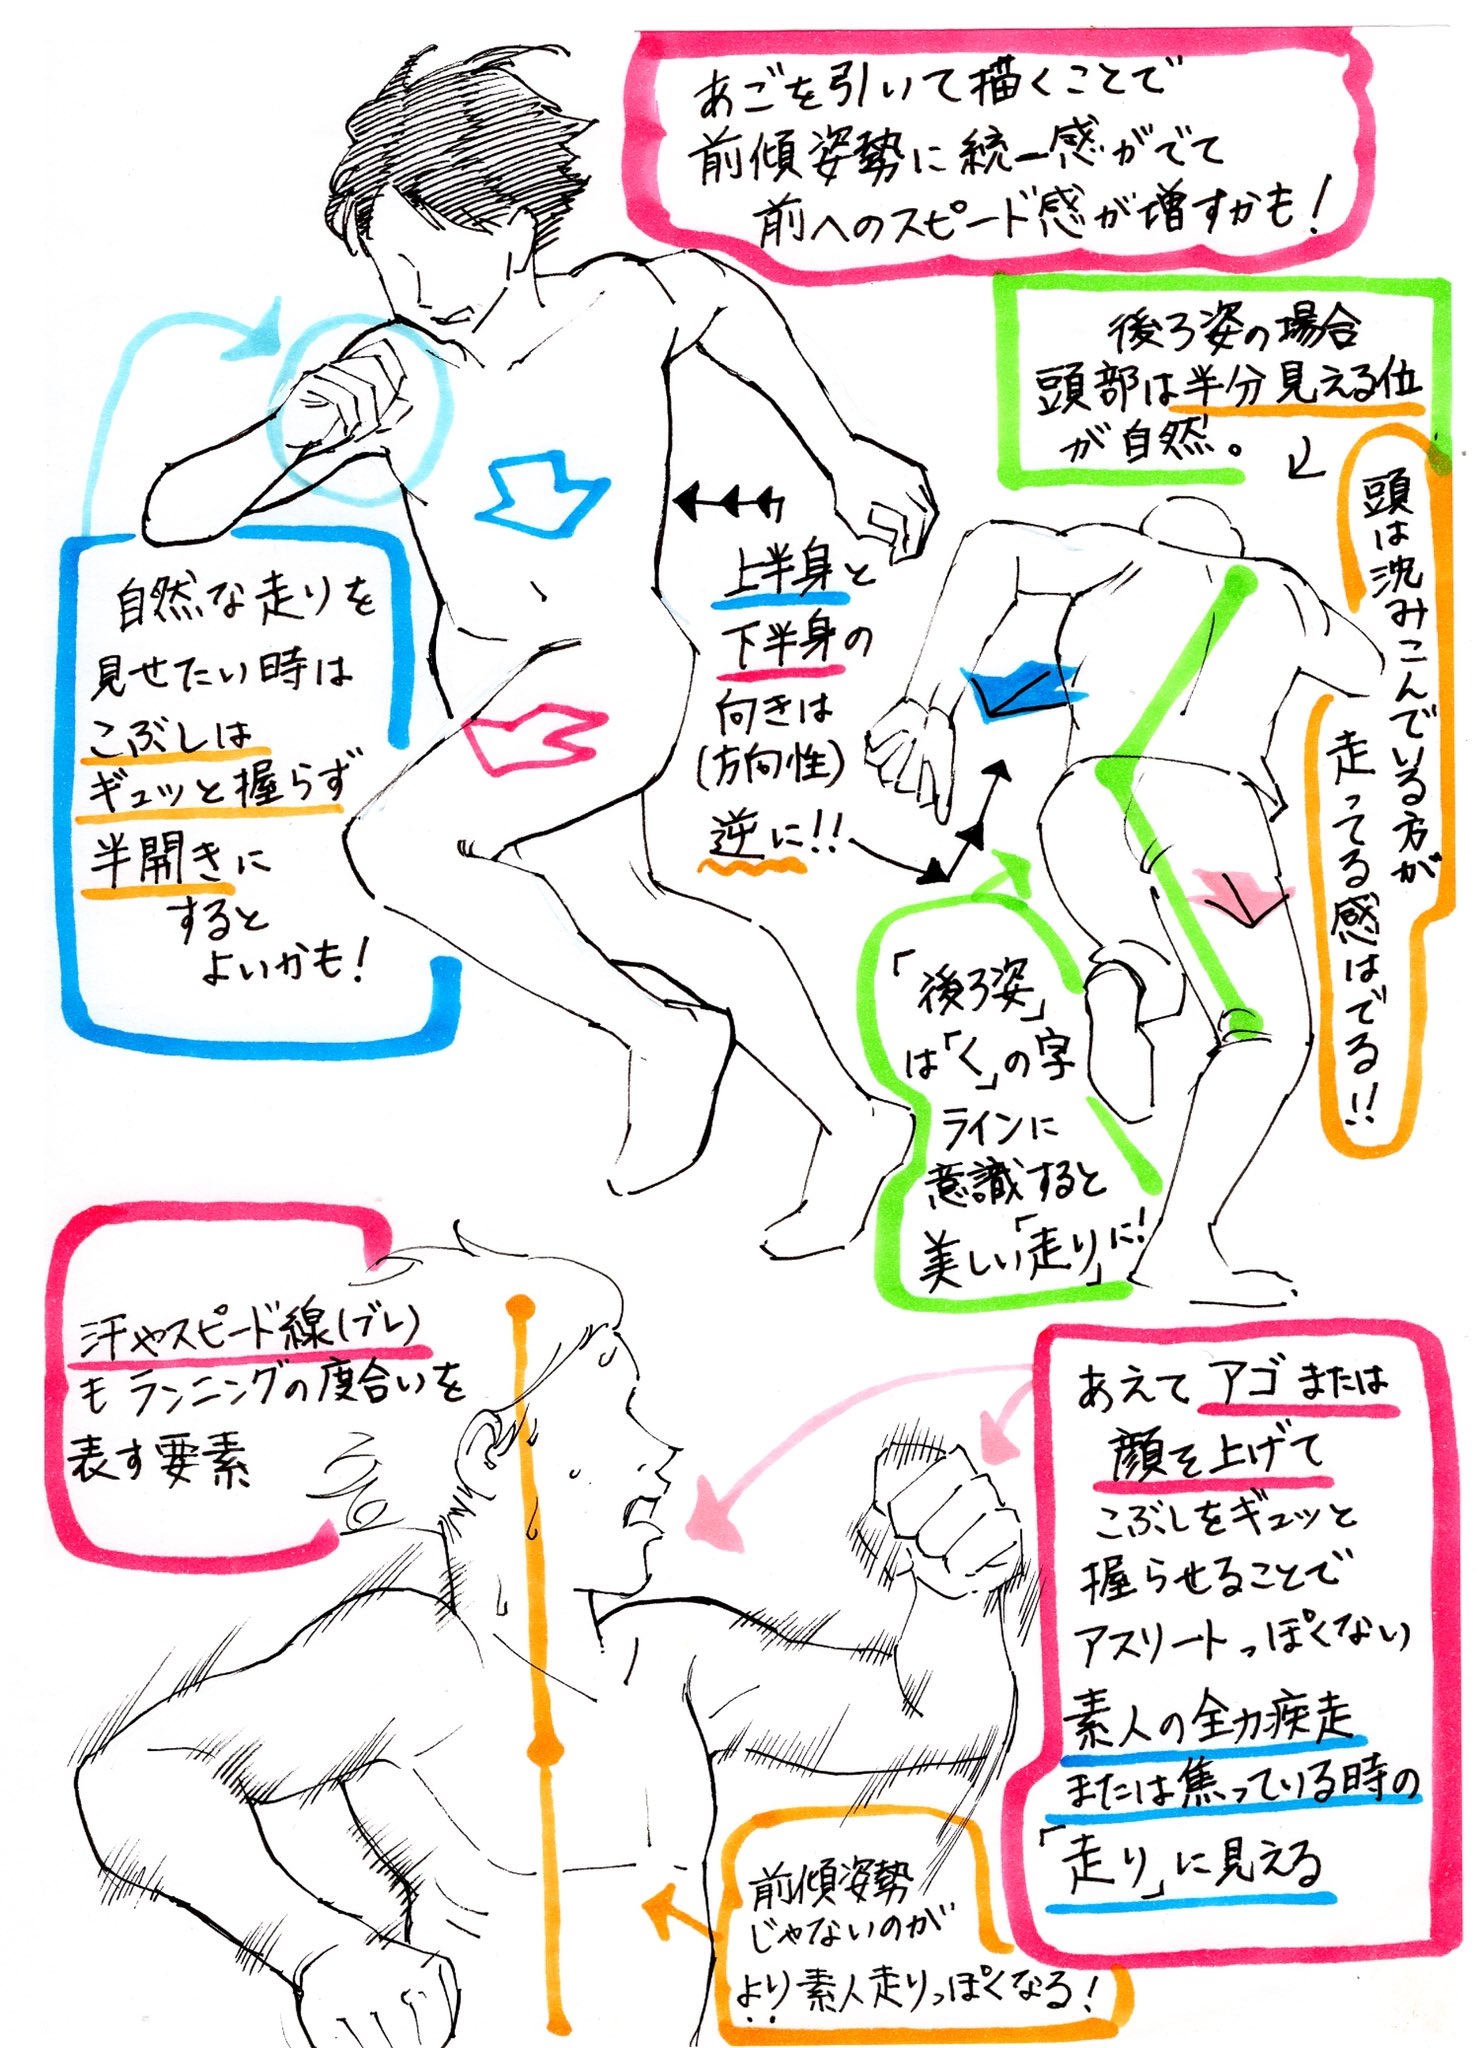 あごを引いて描くことで
前傾姿勢に統一感がでて
前へのスピード感が増すかも！
後ろ姿の場合
頭部は半分見える位
が自然。
頭は沈みこんでいる方が
走ってる感はでる!!
自然な走りを
見せたい時は
こぶしは
ギュッと握らず
半開きに
すると
よいかも！
上半身と
下半身の
向きは
(方向性)
逆に!!
「後ろ姿」
は「く」の字
ラインに
意識すると
美しい「走り」に！
汗やスピード線(ブレ)
もランニングの度合いを
表す要素
あえてアゴまたは
顔を上げて
こぶしをギュッと
握らせることで
アスリートっぽくない
素人の全力疾走
または焦っている時の
「走り」に見える
前傾姿勢
じゃないのが
より素人走りっぽくなる！